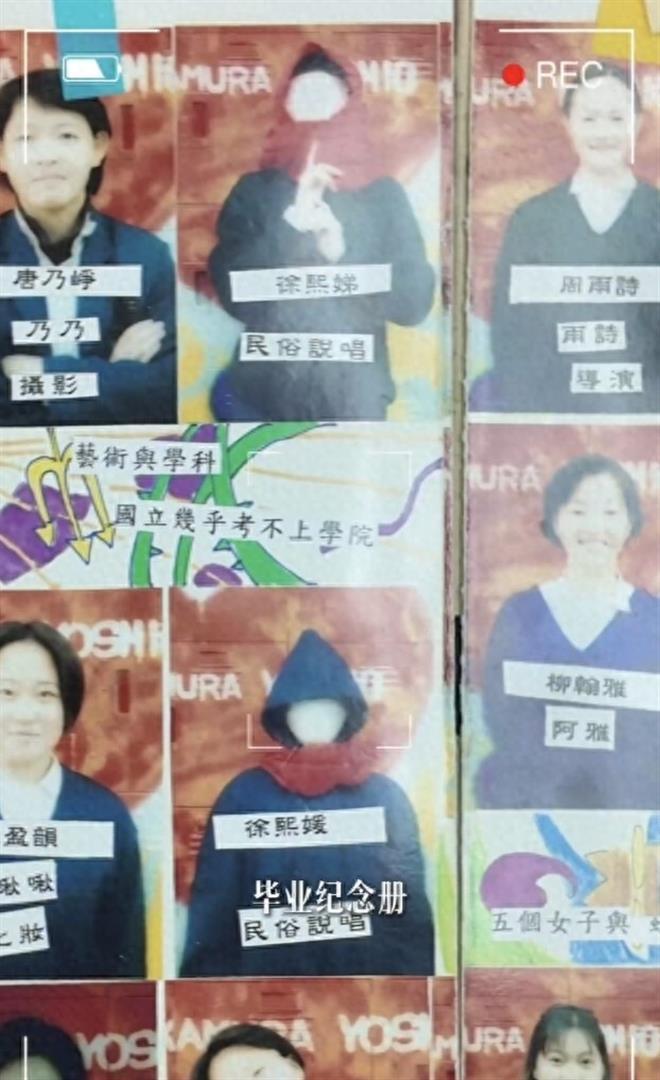 REC
MURA
MURA
唐乃崢
乃乃
攝影
徐熙娣
民俗説唱
周雨詩
雨詩
導演
藝術與學科
國立幾乎考不上學院
MURA
YOSHI
MURA
柳翰雅
阿雅
盈韻
啾啾
化妝
徐熙媛
毕业纪念册
民俗説唱
五個女子與
YOS
KAMURA YOSI
MURA